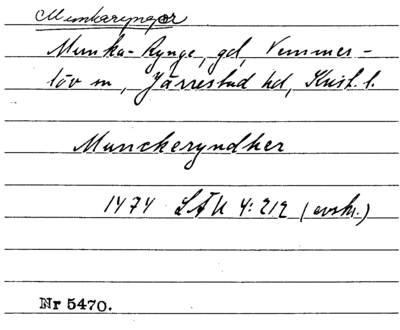 Munkaryngor
Munka-Rynge, gd, Vemmer-
löv sn, Järrestad hd, Krist. l.
Munckeryndher
1474 LÄU 4: 212 (avskr.)
Nr 5470.